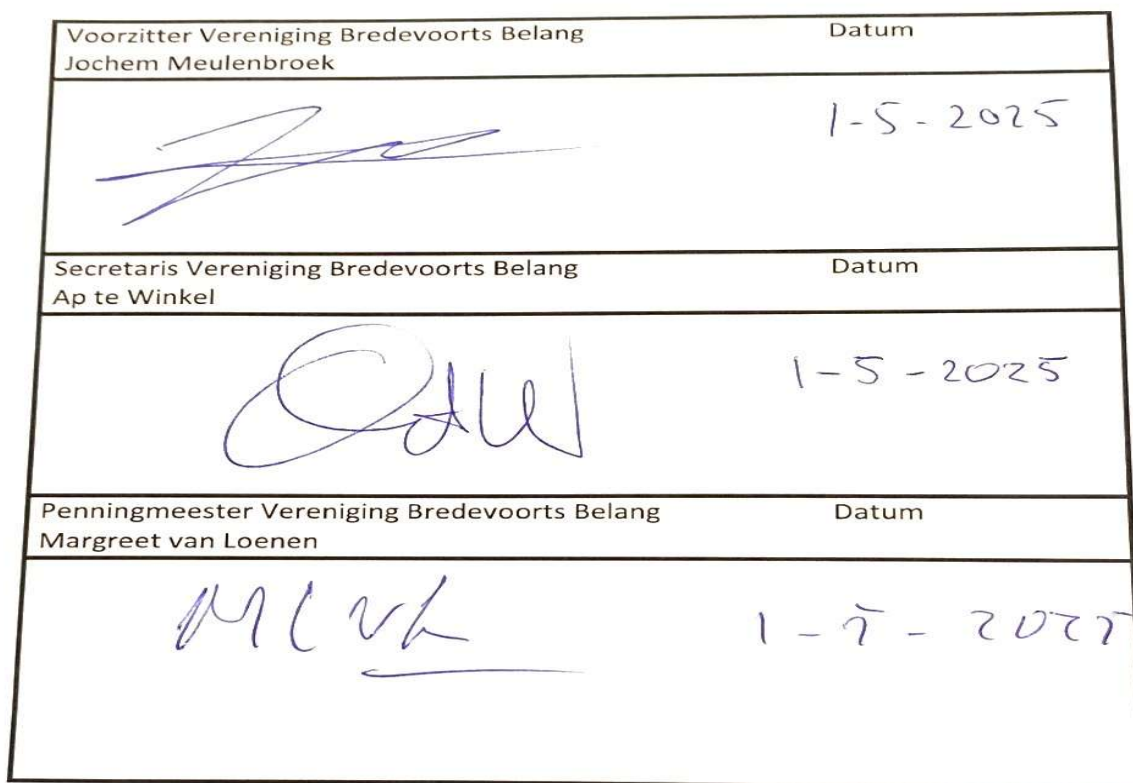 Voorzitter Vereniging Bredevoorts Belang Datum
Jochem Meulenbroek
1-5-2025
Secretaris Vereniging Bredevoorts Belang Datum
Ap te Winkel
1-5-2025
Penningmeester Vereniging Bredevoorts Belang Datum
Margreet van Loenen
1-5-2025